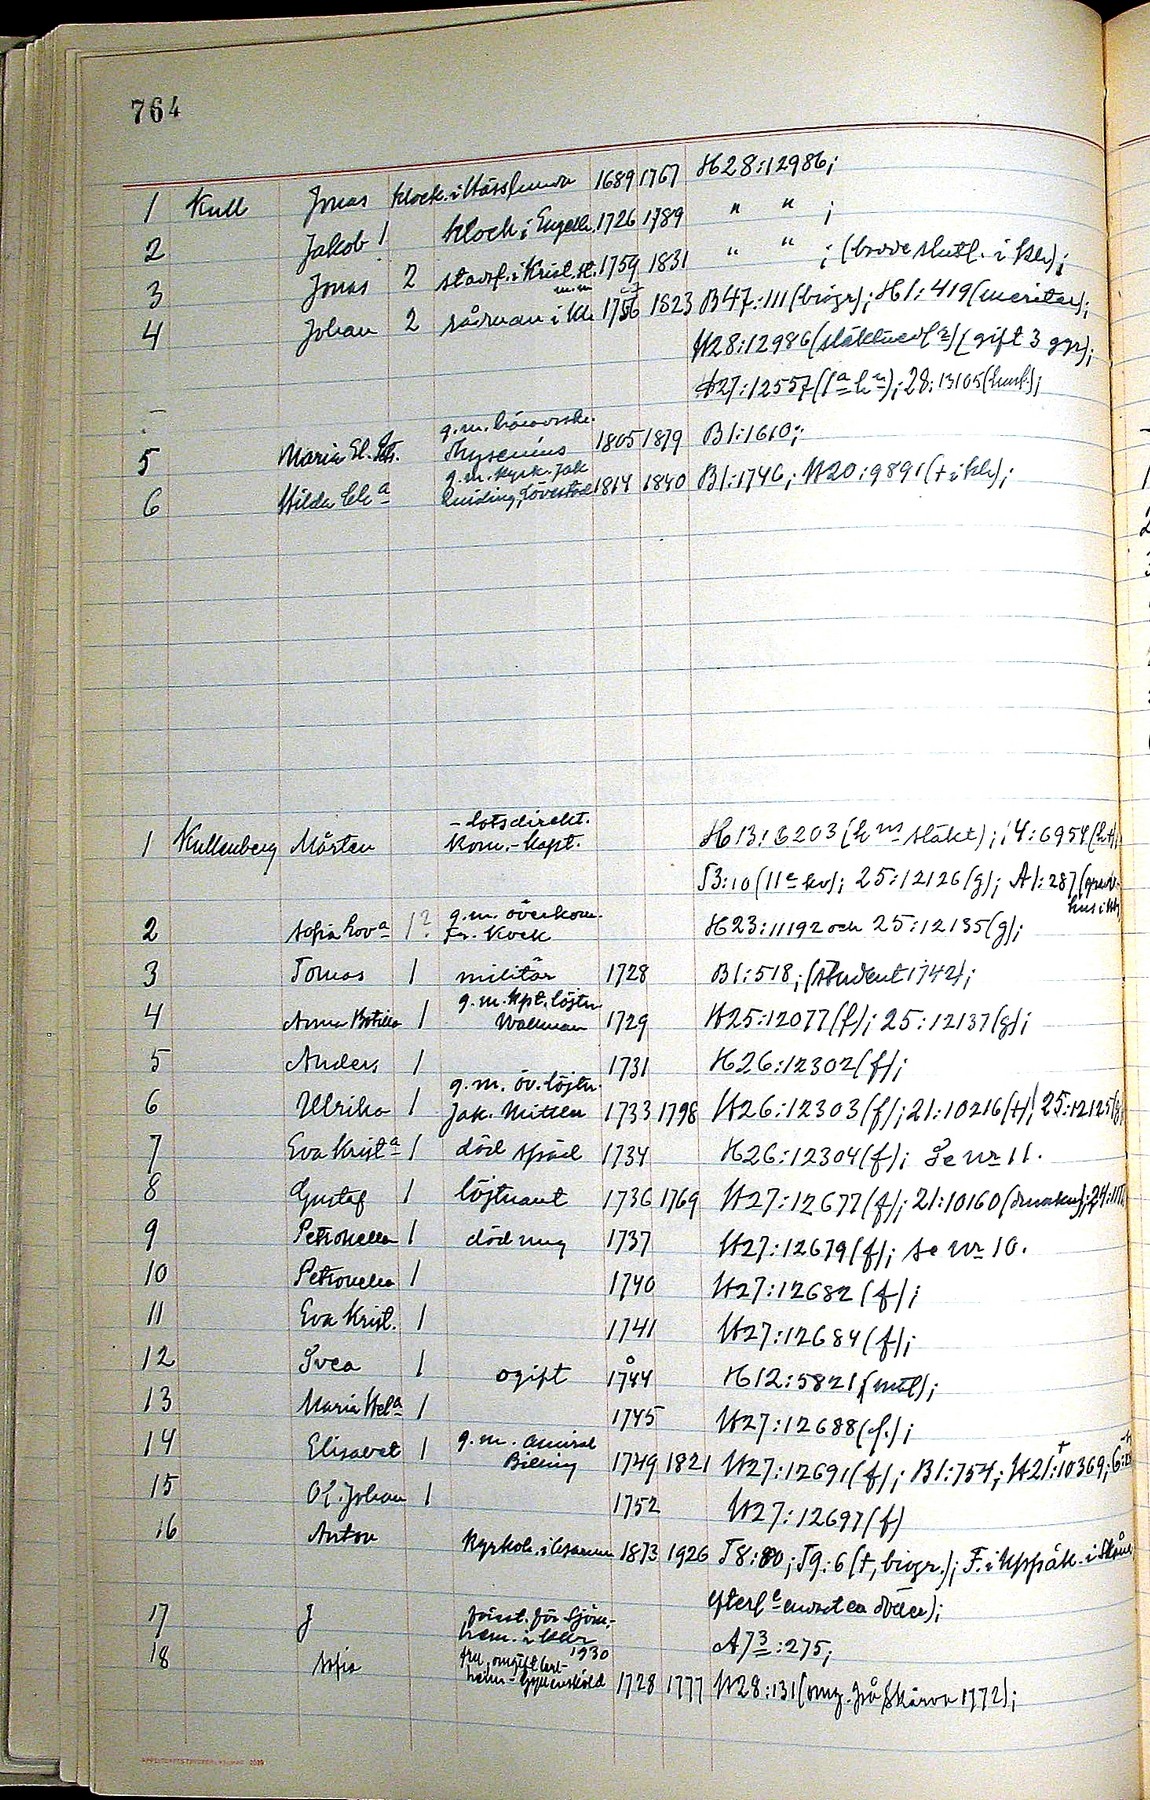 764
1 Kull Jonas klock. i Hässlunda 1689 1767 H28:12986;
2 Jakob 1 klock i Engelh. 1726 1789 " " ;
3 Jonas 2 stadsf. i Krist.st. 1759 1831 " " ; (broder slutl. i Kh);
m.m
4 Johan 2 rådman i Kh 1756 1823 B47:111(biogr); H1:419(meriter);
H28:12986 (gift 3 ggr);
H27:12557(1a h); 28:13105
g.m.
5 Maria El. Thysenius 1805 1879 B1:1610;
g.m. kyrk. Jak
6 Hilda Ch a Quiding, Lövestad 1814 1840 B1:1746; H20:9891(† i Kh);
- lotsdirekt.
1 Kullenberg Mårten kom.-kapt. H13:6203(hns släkt); 14:6954
S3:10(11e kv); 25:12126(g); A1:287
hus i Kh
g.m. överkom.
2 Sofia Lova 1? Fr. Kock H23:11192 och 25:12135(g);
3 Tomas 1 militär 1728 B1:518; (student 1742);
g.m. kpt.löjtn.
4 Anna Botilla 1 Wallman 1729 H25:12077(f); 25:12137(g);
5 Anders 1 1731 H26:12302(f);
g.m. öv.löjtn.
6 Ulrika 1 Jak. 1733 1798 H26:12303(f); 21:10216(†); 25:12125(g)
7 Eva Krista 1 död späd 1734 H26:12304(f); Se nr 11.
8 Gustaf 1 löjtnant 1736 1769 H27:12677(f); 21:10160
9 Petronella 1 död ung 1737 H27:12679(f); se nr 10.
10 Petronella 1 1740 H27:12682(f);
11 Eva Krist. 1 1741 H27:12684(f);
12 Svea 1 ogift 1744 H12:5821
13 Maria Hela 1 1745 H27:12688(f.);
14 Elisabet 1 g.m. amiral 1749 1821 H27:12691(f); B1:754; H21:10369;
Billing
15 Ol. Johan 1 1752 H27:12697(f)
16 Anton Kyrkoh. i 1873 1926 T8:80; T9:6(†, biogr.); F. i Uppåk. i Skåne
efterl
17 J för Sjöm.-
hem. i 1930 A73:275;
18 Sofia fru, omgift
Gyllensköld 1728 1777 H28:131(omg. på Skärva 1772);